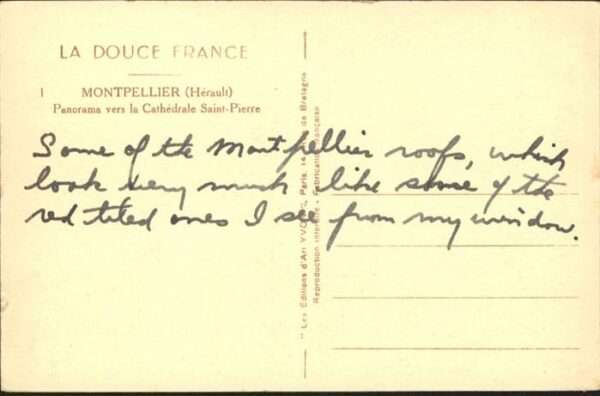 LA DOUCE FRANCE
1 MONTPELLIER (Hérault)
Panorama vers la Cathédrale Saint-Pierre
Some of the Montpellier roofs, which
look very much like some of the
red tiled ones I see from my window.
"Les Éditions d'Art YVON", Paris, de Bretagne
Reproduction interdite - Fabrication Française